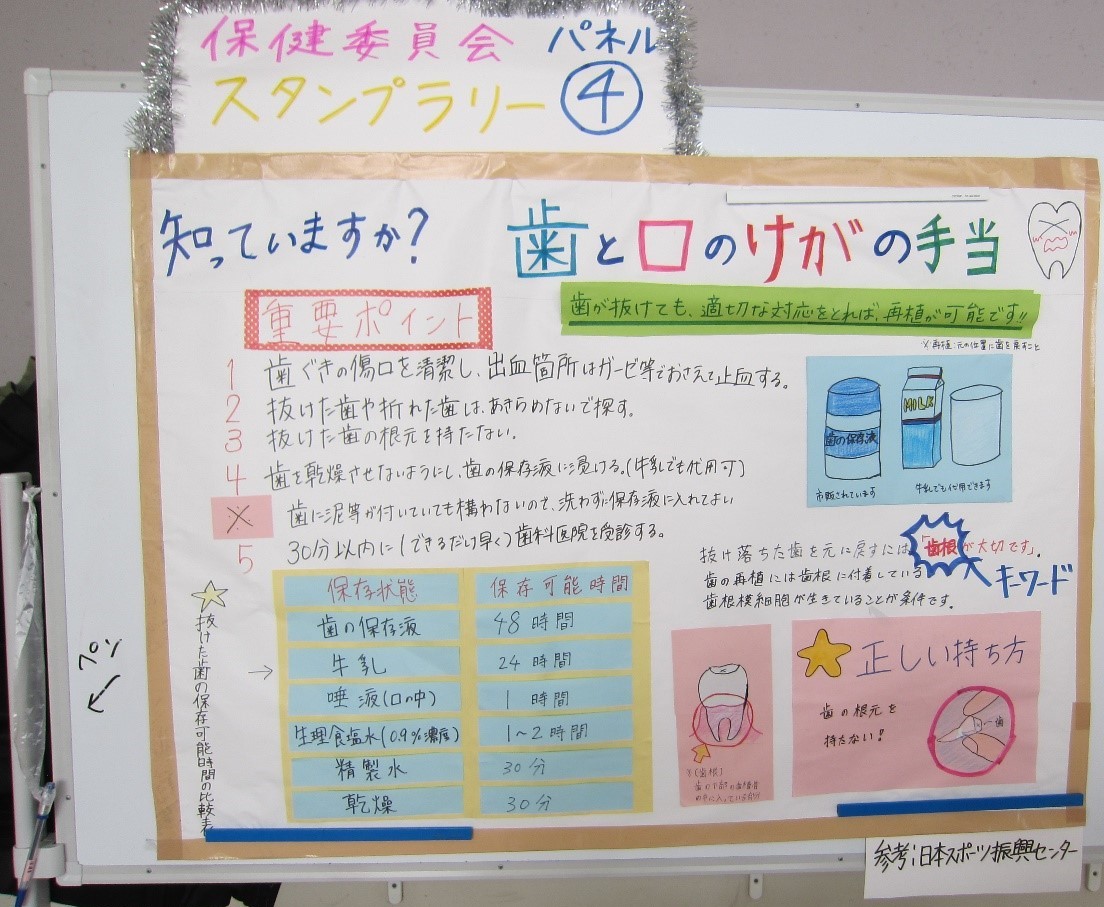 保健委員会 パネル
スタンプラリー ④
知っていますか?
歯と口のけがの手当
重要ポイント
歯が抜けても、適切な対応をとれば、再植が可能です!!
※再植:元の位置に歯を戻すこと
1 歯ぐきの傷口を清潔し、出血箇所はガーゼ等でおさえて止血する。
2 抜けた歯や折れた歯は、あきらめないで探す。
3 抜けた歯の根元を持たない。
4 歯を乾燥させないようにし、歯の保存液に浸ける。(牛乳でも代用可)
※ 歯に泥等が付いていても構わないので、洗わずに保存液に入れてよい
5 30分以内に(できるだけ早く)歯科医院を受診する。
歯の保存液
MILK
市販されています
牛乳でも代用できます
抜け落ちた歯を元に戻すには「歯根が大切です」。
歯の再植には歯根に付着している
歯根模細胞が生きていることが条件です。
キーワード
抜けた歯の保存可能時間の比較表
→
保存状態 保存可能時間
歯の保存液 48時間
牛乳 24時間
唾液(口の中) 1時間
生理食塩水(0.9%濃度) 1~2時間
精製水 30分
乾燥 30分
※(歯根)
正しい持ち方
歯の根元を
持たない!
歯
ペン
参考:日本スポーツ振興センター